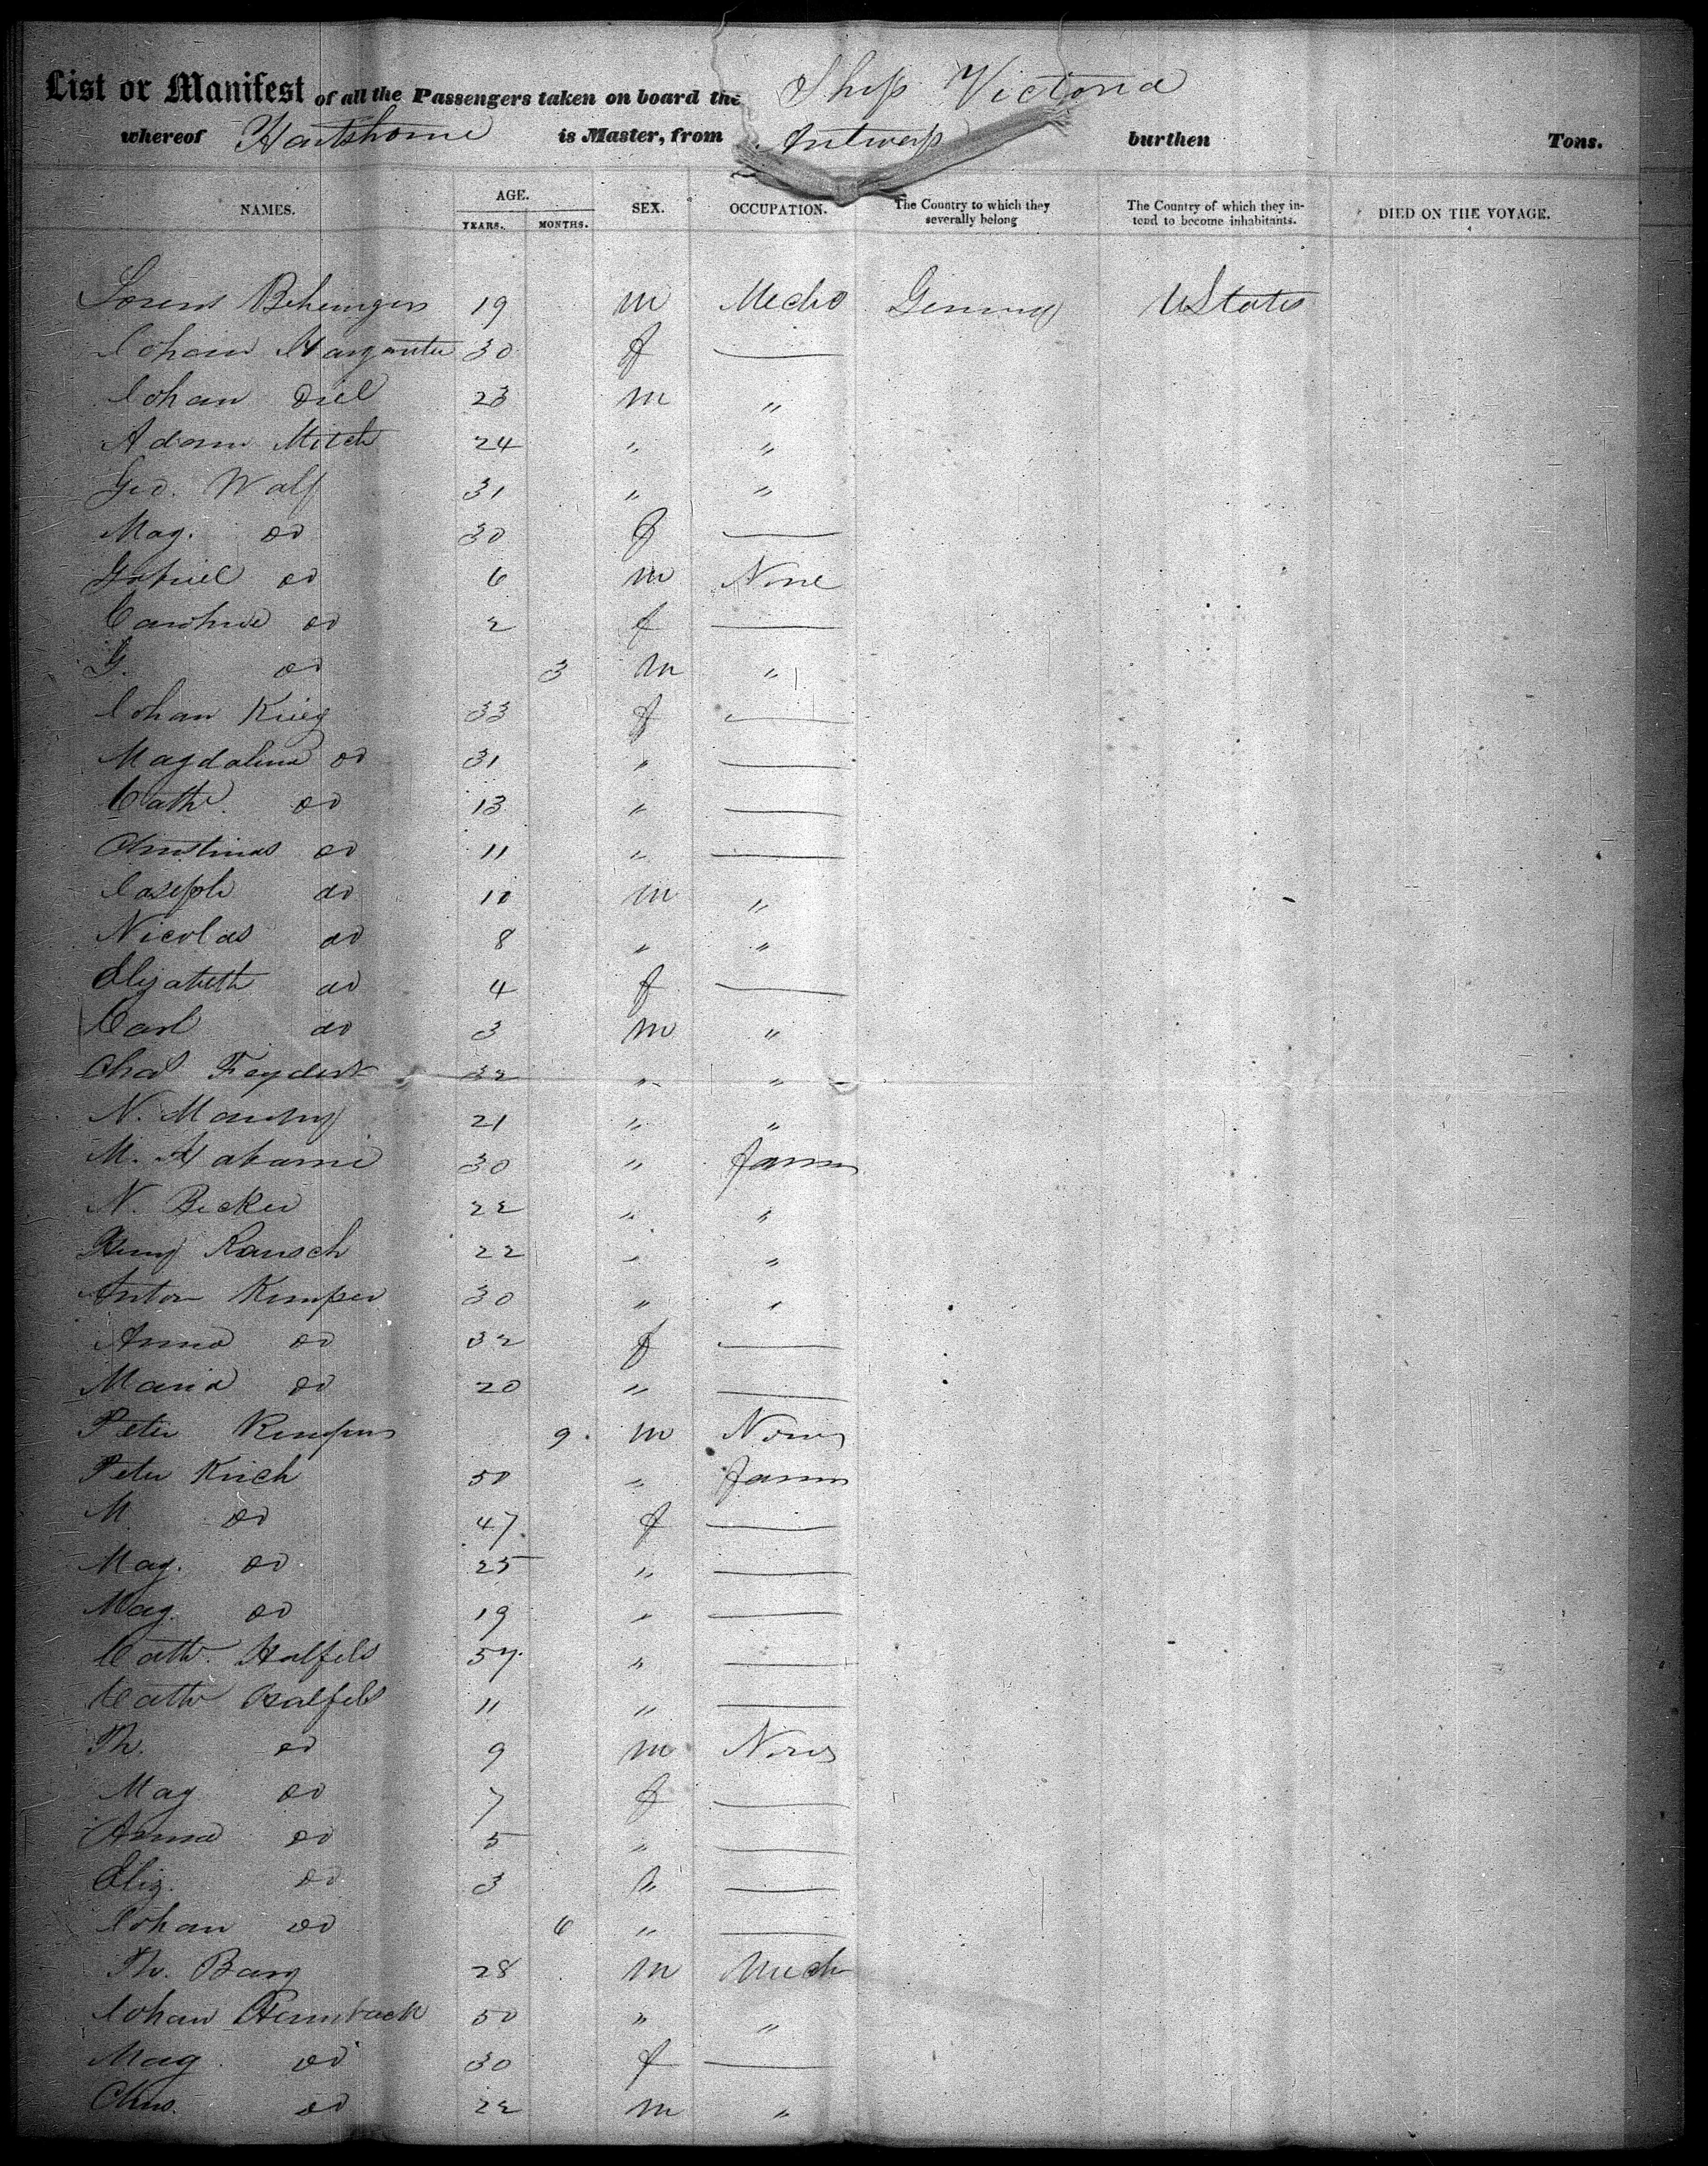 List or Manifest of all the Passengers taken on board the Ship Victoria
whereof Hartshorne is Master, from Antwerp burthen Tons.
NAMES. AGE. YEARS. MONTHS. SEX. OCCUPATION. The Country to which they severally belong The Country of which they intend to become inhabitants. DIED ON THE VOYAGE.
Lorens 19 m Mecho Germany UStates
Johann Margaretha 30 f —
Johan Diel 23 m "
Adam Mitch 24 " "
Geo. Walf 31 " "
Mag. do 30 f —
Gabriel do 6 m None
Caroline do 2 f —
G. do 3 m "
Johan Krieg 33 f —
Magdalena do 31 " —
Cath. do 13 " —
Christina do 11 " —
Joseph do 10 m "
Nicolas do 8 " "
Elizabeth do 4 f —
Carl do 3 m "
Chas 32 " "
N. 21 " "
M. 30 " Farmr
N. Becker 22 " "
Henry Rausch 22 " "
Anton Kemper 30 " "
Anna do 32 f —
Maria do 20 " —
Peter 9 m None
Peter Krich 50 " Farmr
M do 47 f —
Mag. do 25 " —
Mag. do 19 " —
Cath. Halfels 57 " —
Cath Halfels 11 " —
Th. do 9 m None
Mag do 7 f —
Anna do 5 " —
Eliz. do 3 " —
Johan do 6 " —
Th. Barg 28 m Mech
Johan 50 " "
Mag. do 30 f —
Chas. do 22 m "